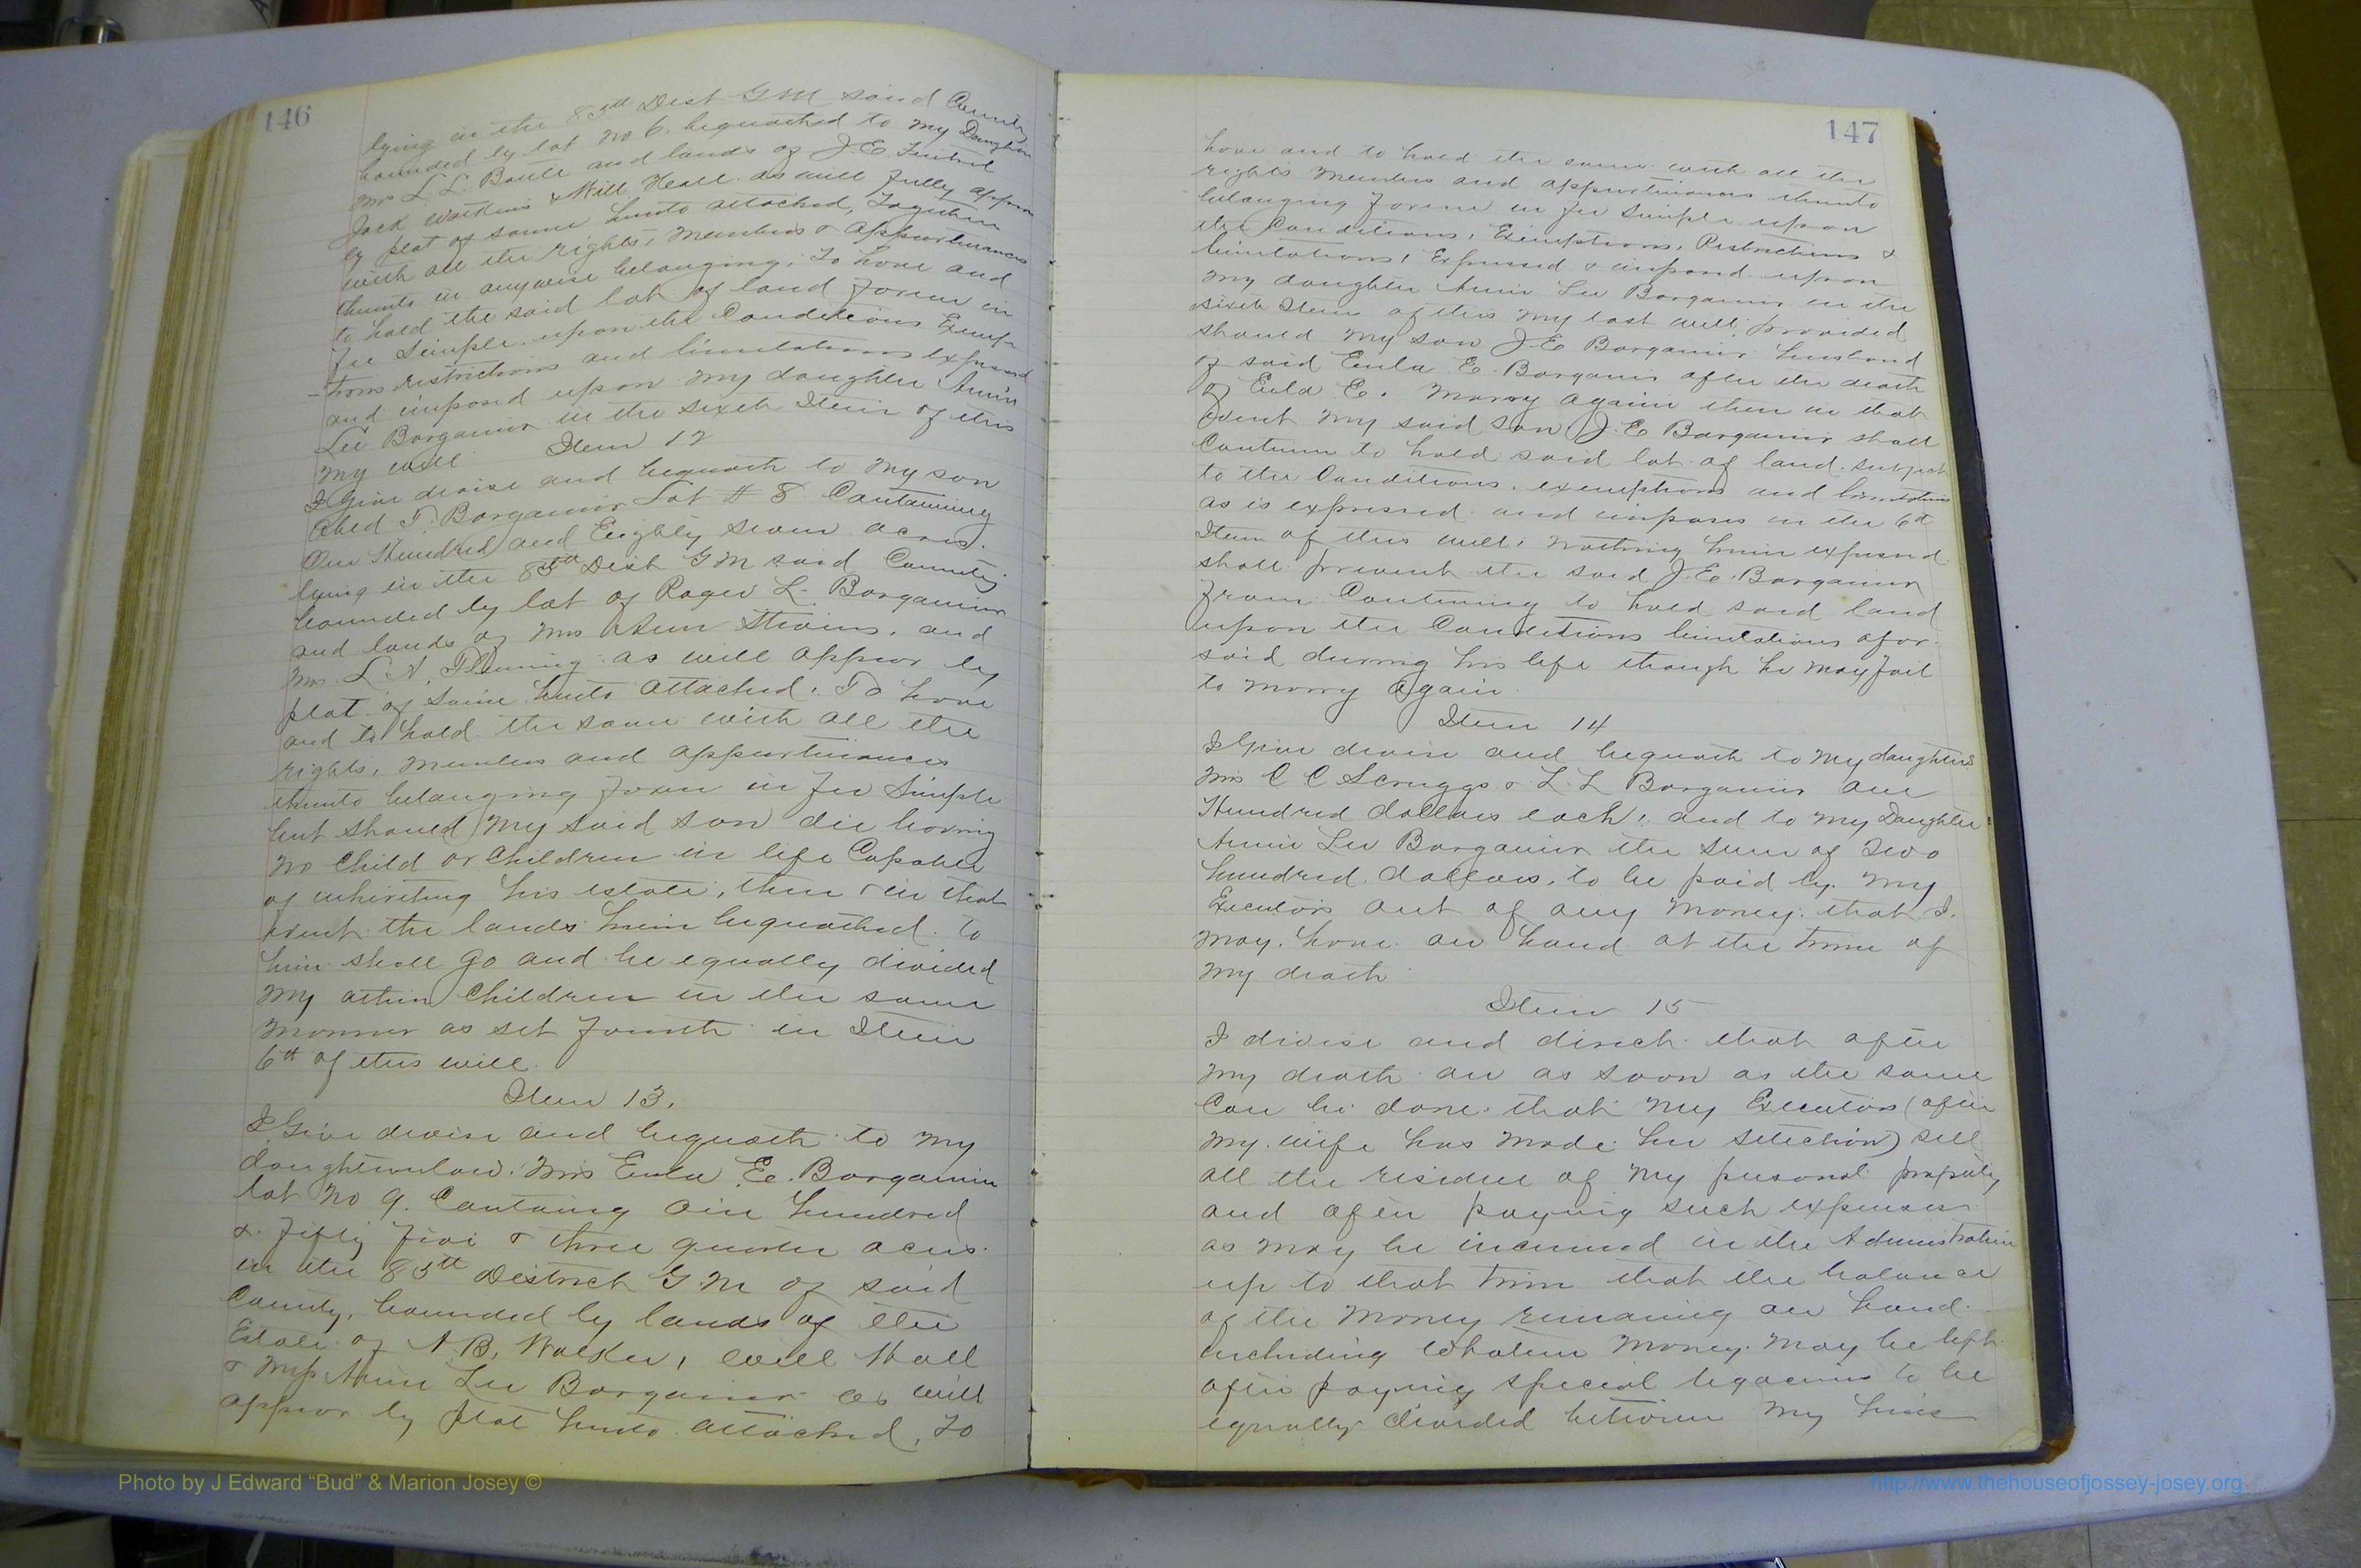 146
lying in the 85th Dist G M said County
bounded by lot no 6. bequeathed to my Daughter
Mrs L. L. and lands of J. E.
Jack Watkins & Will Hall as will fully appear
by plat of same hereto attached, Together
with all the rights, members & appurtenances
thereto in anywise belonging, To have and
to hold the said lot of land forever in
fee simple upon the Conditions Exemp-
-tions restrictions and limitations expressed
and imposed upon my daughter Annie
Lee Bargainier in the sixth Item of this
my will
Item 12
I Give devise and bequeath to my son
T. Bargainier Lot # 8 Containing
One Hundred and Eighty seven acres.
lying in the 85th Dist G M said County
bounded by lot of Roger L. Bargainier
and lands of Mrs and
Mrs L. N. Fleming as will appear by
plat of same hereto attached. To have
and to hold the same with all the
rights, members and appurtenances
thereto belonging forever in fee simple
but should my said son die leaving
no child or children in life Capable
of inheriting his estate, then & in that
event the lands herein bequeathed to
him shall go and be equally divided
my other children in the same
manner as set fourth in Item
6th of this will.
Item 13.
I Give devise and bequeath to my
daughterinlaw. Mrs Eula E. Bargainier
lot No 9. Containing One hundred
& fifty five & three quarter acres.
in the 85th District G M of said
County, bounded by lands of the
Estate of N. B. Walker, Will Hall
& Miss Annie Lee Bargainier as will
appear by plat hereto attached, To
147
have and to hold the same with all the
rights members and appurtenances thereto
belonging forever in fee simple upon
the Conditions, Exemptions, Restrictions &
limitations, Expressed & imposed upon
my daughter Annie Lee Bargainier in the
sixth Item of this my last will, provided
should my son J. E. Bargainier husband
of said Eula E. Bargainier after the death
of Eula E. Marry again then in that
event my said son J. E. Bargainier shall
Continue to hold said lot of land subject
to the Conditions, exemptions and limitations
as is expressed and imposes in the 6th
Item of this will, nothing herein expressed
shall prevent the said J. E. Bargainier
from Continuing to hold said land
upon the Conditions limitations afor
said during his life though he may fail
to marry again.
Item 14
I Give devise and bequeath to my daughters
Mrs C C Scruggs & L. L Bargainier one
Hundred dollars each, and to my Daughter
Annie Lee Bargainier the sum of Two
hundred dollars, to be paid by my
Executors out of any money that I
may have on hand at the time of
my death
Item 15
I devise and direct that after
my death on as soon as the same
Can be done that my Executors (after
my wife has made her selection) sell
all the residue of my personal property
and after paying such expenses
as may be incurred in the Administration
up to that time that the balance
of the money remaining on hand
including whatever money may be left
after paying special legacies to be
equally divided between my heirs
Photo by J Edward “Bud” & Marion Josey ©
http://www.thehouseofjossey-josey.org